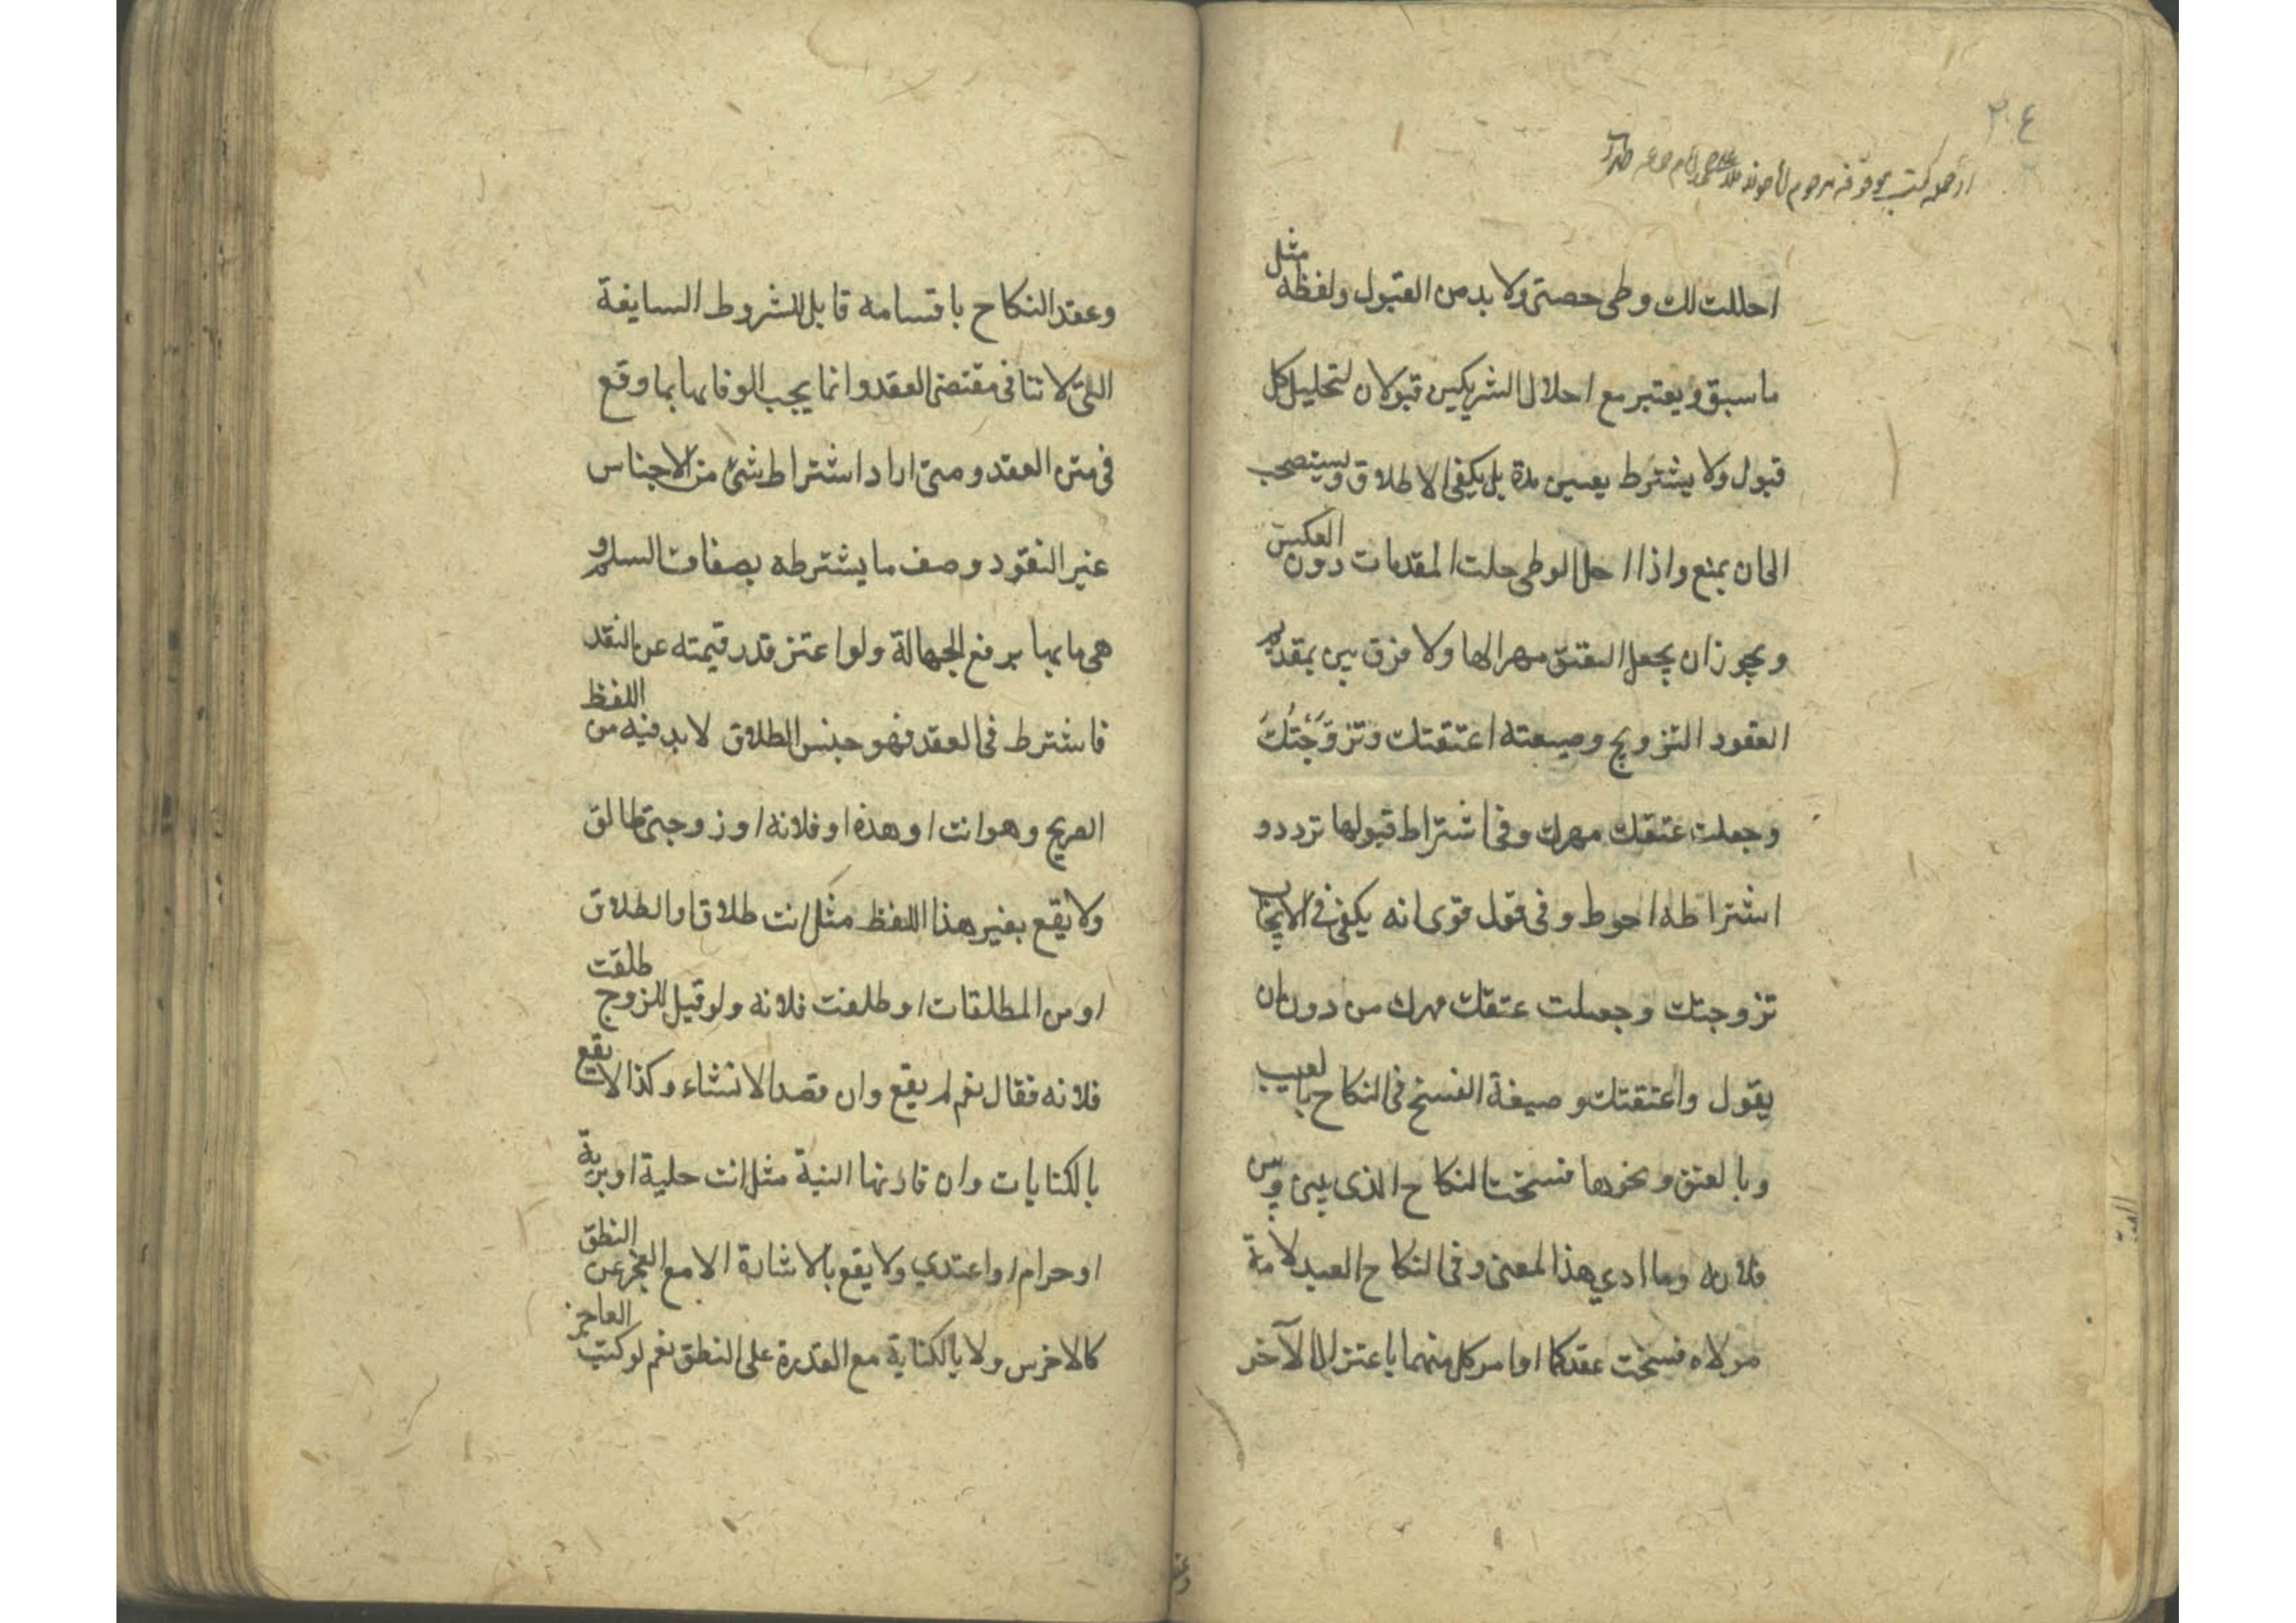 ٢٠٤
از جمله كتب موقوفه مرحوم
احللت لك وطى حصتى ولا بد من القبول ولفظه مثل
ما سبق ويعتبر مع احلال الشريكين قبولان لتحليل كل
قبول ولا يشترط تعيين مدة بل يكفى الاطلاق ويستصحب
الى ان يمنع واذا احل الوطى حلت المقدمات دون العكس
ويجوز ان يجعل العتق مهرا لها ولا فرق بين تقديم
العقود التزويج وصيغته اعتقتك وتزوَّجتُكَ
وجعلت عتقك مهرك وفى اشتراط قبولها تردد و
اشتراطه احوط وفى قول قوى انه يكفى فى الايجاب
تزوجتك وجعلت عتقك مهرك من دون ان
يقول واعتقتك وصيغة الفسخ فى النكاح بالعيب
وبالعتق ونحوها فسخت النكاح الذى بينى وبين
فلانه وما ادي هذا المعنى وفى النكاح العبد لامة
مولاه فسخت عقدكما او امر كل منهما باعتزال الآخر
وعقد النكاح باقسامه قابل للشروط السايغة
التى لا تنافى مقتضى العقد وانما يجب الوفا بها بما وقع
فى متن العقد ومتى اراد اشتراط شئ من الاجناس
غير النقود وصف ما يشترطه بصفات السلم و
هى ما بها يرفع الجهالة ولو اعتز قدر قيمته عن النقد
فاشترط فى العقد فهو حبنس الطلاق لابد فيه من اللفظ
الصريح وهو انت او هذه او فلانه او زوجتى طالق
ولا يقع بغير هذا اللفظ مثل انت طلاق او الطلاق
او من المطلقات او طلقت فلانه ولو قيل للزوج طلقت
فلانه فقال نعم لم يقع وان قصد الانشاء وكذا لا يقع
بالكنايات وان قارنها النية مثل انت خلية او برية
او حرام او اعتدي ولا يقع بالاشارة الا مع العجز عن النطق
كالاخرس ولا بالكتابة مع القدرة على النطق نعم لو كتب العاجز